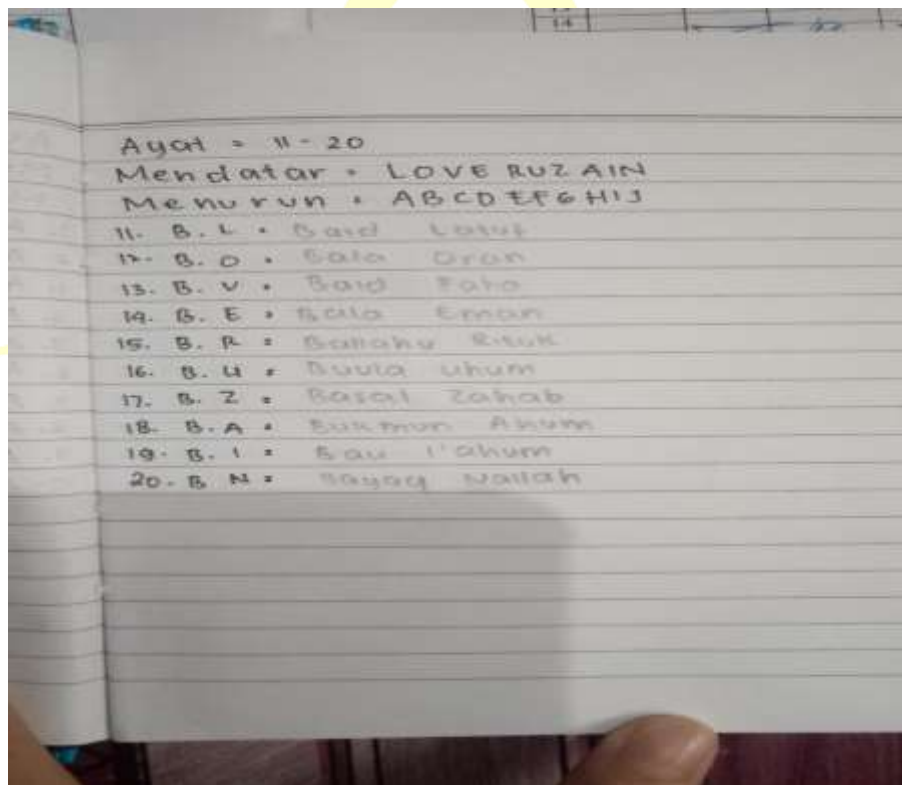 14
Ayat = 11 - 20
Mendatar = LOVE RUZAIN
Menurun = ABCDEFGHIJ
11. B. L = Baid Latuf
12. B. O = Bala Oran
13. B. V = Baid
14. B. E = Bala Eman
15. B. R = Ballahu
16. B. U = Buula Uhum
17. B. Z = Basal Zahab
18. B. A = Bukmun Ahum
19. B. I = Bau I'ahum
20. B N = Bayaq Nallah